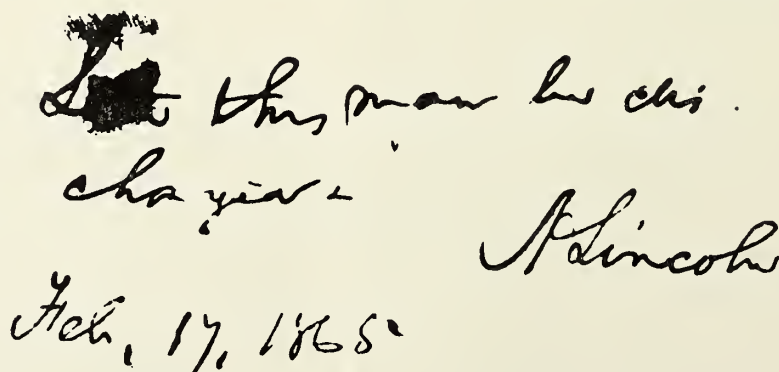 Let this man be dis-
charged.
A Lincoln
Feb, 17, 1865.